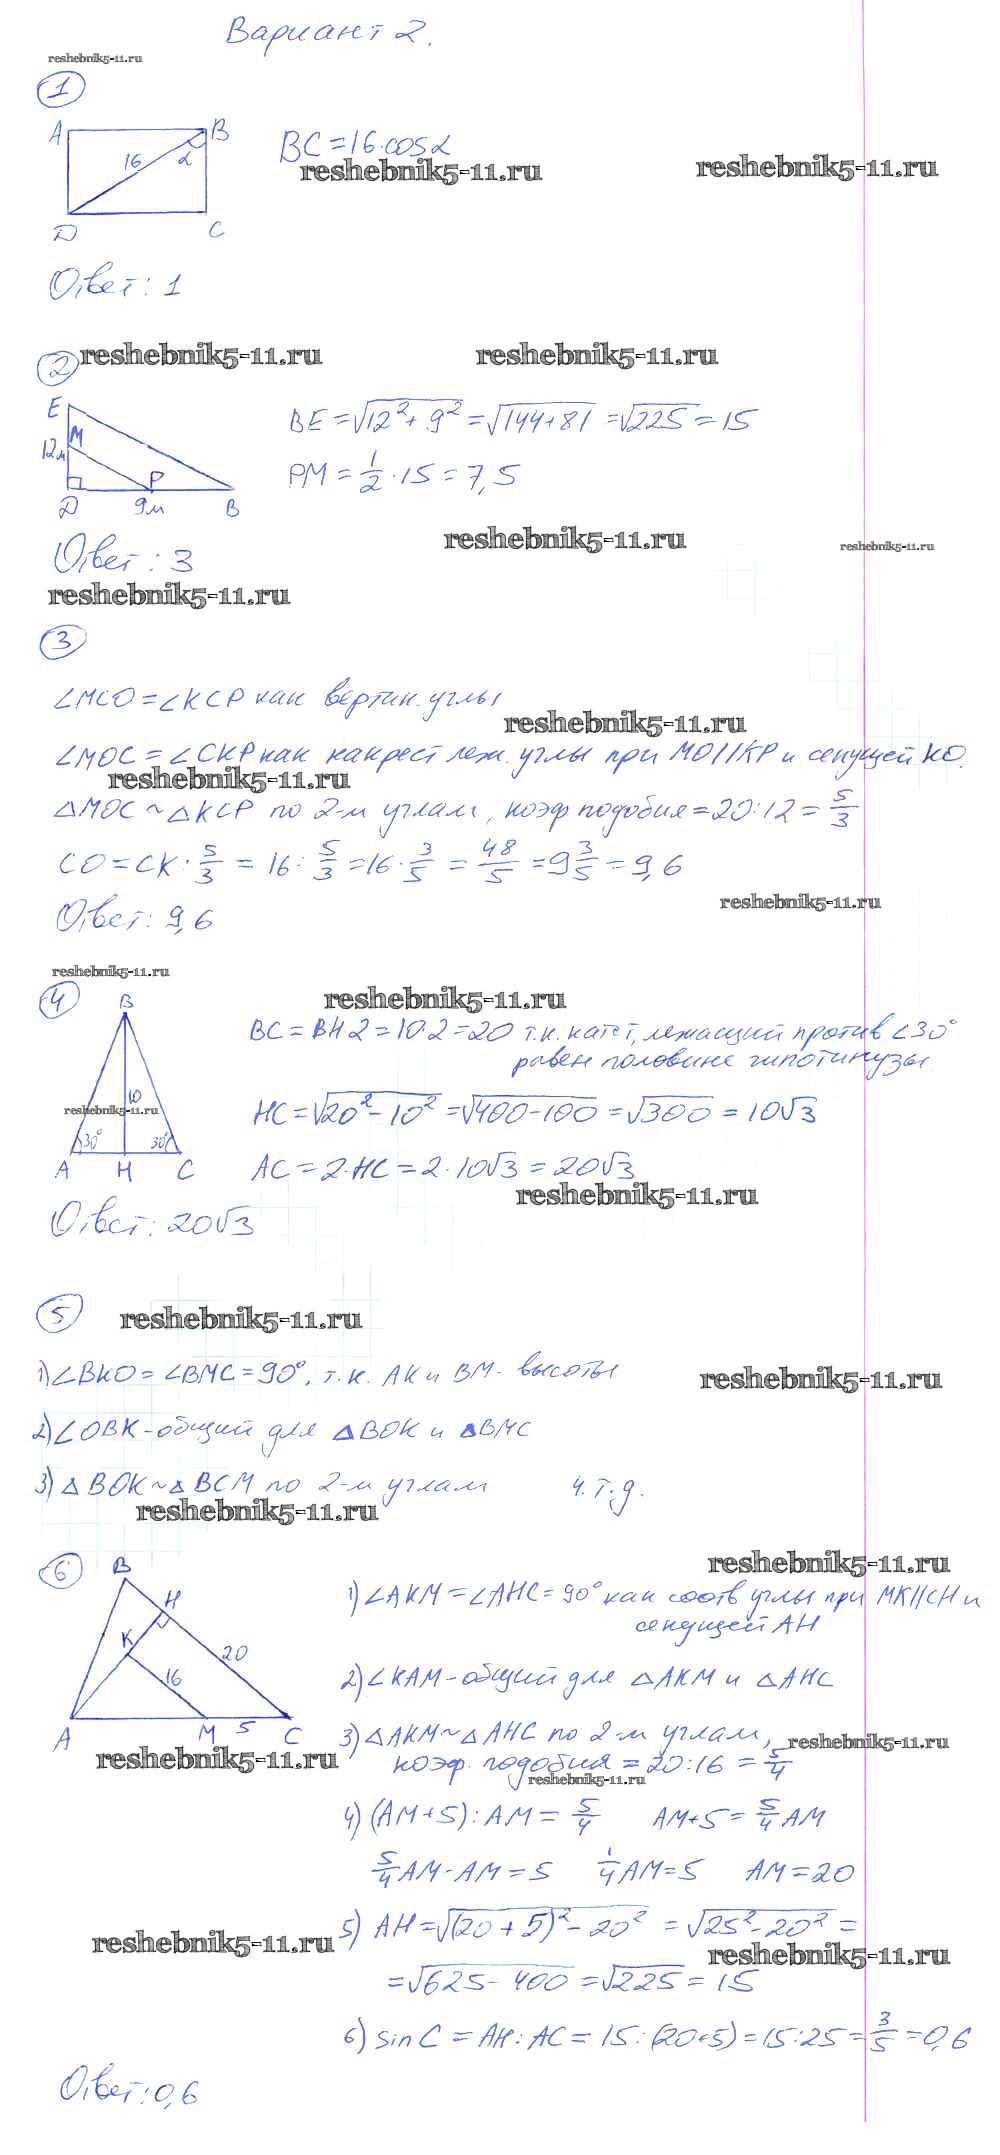 Вариант 2.
reshebnik5-11.ru
1
A B
16 α
D C
BC = 16·cosα
reshebnik5-11.ru reshebnik5-11.ru
Ответ: 1
2 reshebnik5-11.ru reshebnik5-11.ru
E
M
12м
P
D 9м B
BE = √12² + 9² = √144+81 = √225 = 15
PM = 1/2 · 15 = 7,5
reshebnik5-11.ru reshebnik5-11.ru
Ответ: 3
reshebnik5-11.ru
3
∠MCO = ∠KCP как вертик. углы
reshebnik5-11.ru
∠MOC = ∠CKP как накрест леж. углы при MO||KP и секущей KO.
reshebnik5-11.ru
△MOC ~ △KCP по 2-м углам, коэф подобия = 20:12 = 5/3
CO = CK · 5/3 = 16 : 5/3 = 16 · 3/5 = 48/5 = 9 3/5 = 9,6
reshebnik5-11.ru
Ответ: 9,6
reshebnik5-11.ru
4 reshebnik5-11.ru
B
10
reshebnik5-11.ru
30° 30°
A H C
BC = BH·2 = 10·2 = 20 т.к. катет, лежащий против ∠30°
равен половине гипотинузы.
HC = √20² - 10² = √400-100 = √300 = 10√3
AC = 2·HC = 2·10√3 = 20√3
reshebnik5-11.ru
Ответ: 20√3
5 reshebnik5-11.ru
1) ∠BKO = ∠BMC = 90°, т.к. AK и BM - высоты
reshebnik5-11.ru
2) ∠OBK - общий для △BOK и △BMC
3) △BOK ~ △BCM по 2-м углам ч.т.д.
reshebnik5-11.ru
6 reshebnik5-11.ru
B
H
K 20
16
A M 5 C
1) ∠AKM = ∠AHC = 90° как соотв углы при MK||CH и
секущей AH
2) ∠KAM - общий для △AKM и △AHC
3) △AKM ~ △AHC по 2-м углам,
reshebnik5-11.ru
reshebnik5-11.ru
коэф. подобия = 20:16 = 5/4
reshebnik5-11.ru
4) (AM+5) : AM = 5/4 AM+5 = 5/4 AM
5/4 AM - AM = 5 1/4 AM = 5 AM = 20
5) AH = √(20+5)² - 20² = √25² - 20² =
reshebnik5-11.ru reshebnik5-11.ru
= √625 - 400 = √225 = 15
6) sin C = AH : AC = 15 : (20+5) = 15 : 25 = 3/5 = 0,6
Ответ: 0,6